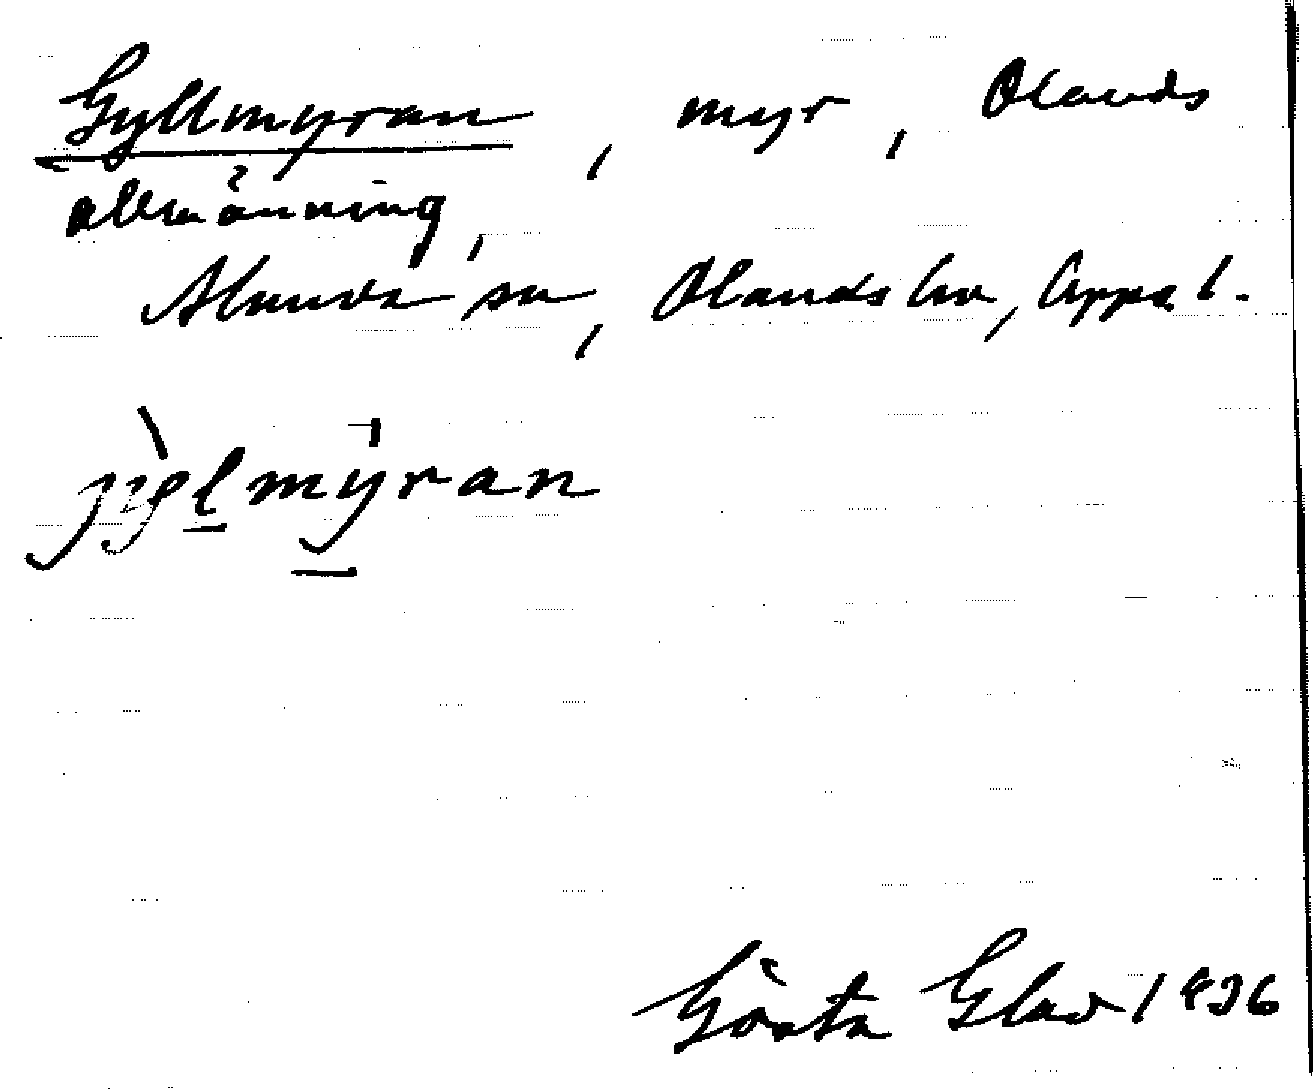 Gyllmyran, myr, Olands
allmänning,
Alunda sn, Olands hd, Uppsal.
Gösta Glad 1936